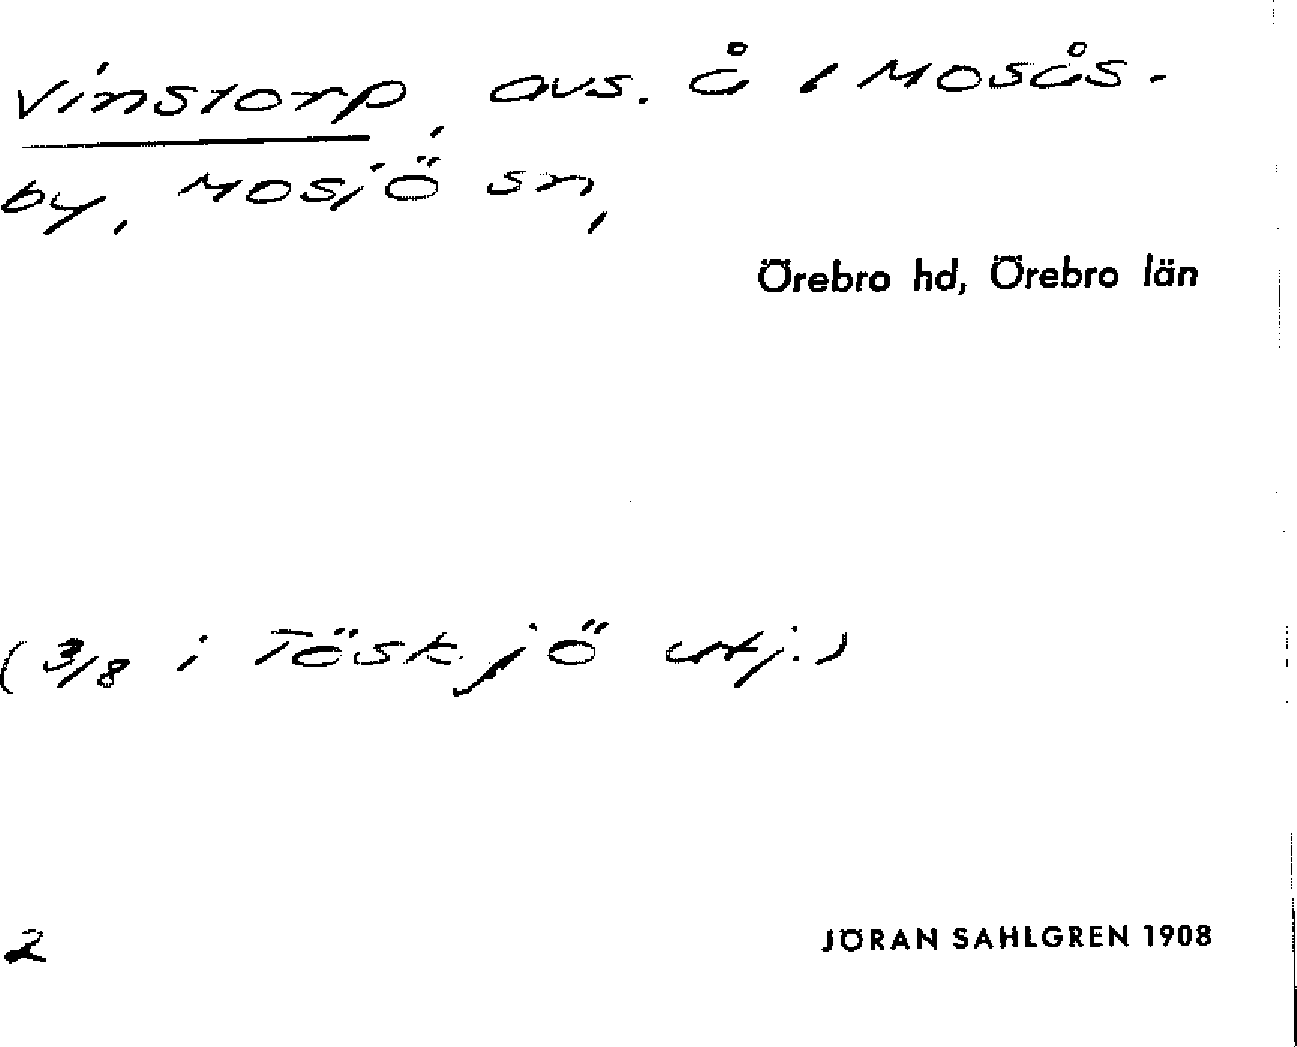 Vinstorp, avs. å i Mosås-
by, Mosjö sn,
Örebro hd, Örebro län
(3/8 i Töskjö utj.)
2
JÖRAN SAHLGREN 1908